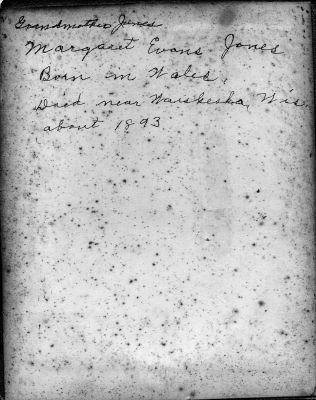 Grandmother Jones
Margaret Evans Jones
Born in Wales.
Died near Waukesha, Wis.
about 1893